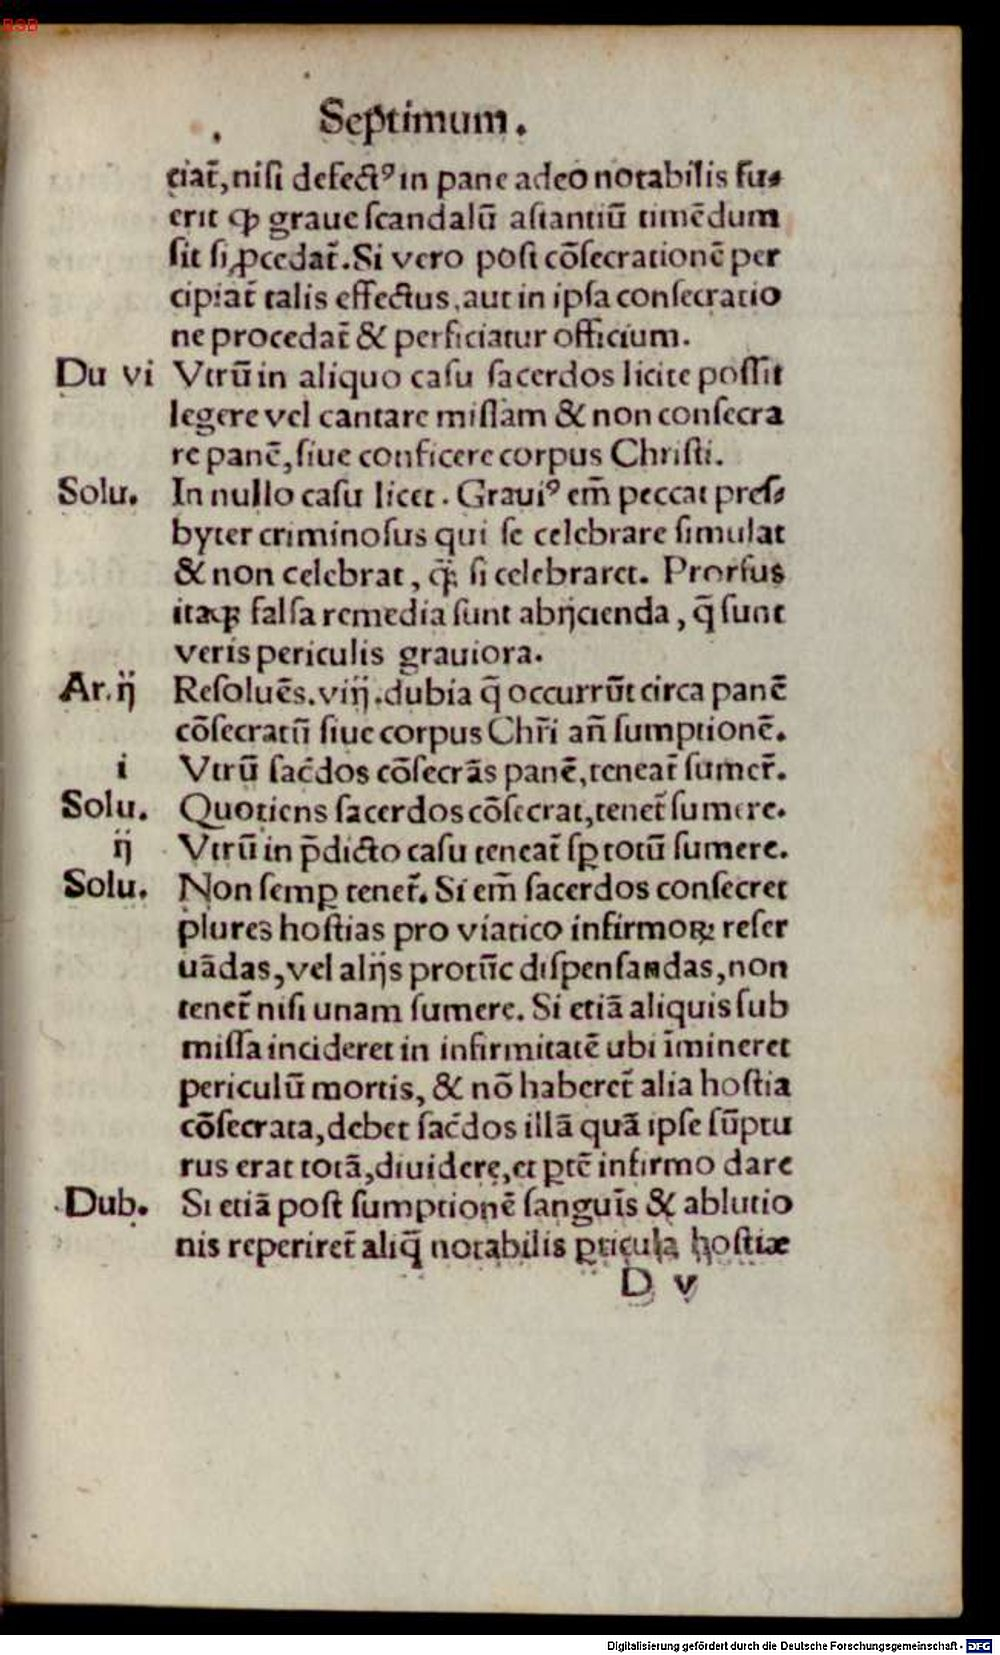 BSB
Septimum.
ciat̃, niſi defectꝰ in pane adeo notabilis fu⸗
erit ꝙ graue ſcandalū aſtantiū timēdum
ſit ſi ꝓcedat̃. Si vero poſt cōſecrationē per
cipiat̃ talis effectus, aut in ipſa conſecratio
ne procedat̃ & perficiatur officium.
Du vi Vtrū in aliquo caſu ſacerdos licite poſſit
legere vel cantare miſſam & non conſecra
re panē, ſiue conficere corpus Chriſti.
Solu. In nullo caſu licet. Grauiꝰ em̄ peccat preſ⸗
byter criminoſus qui ſe celebrare ſimulat
& non celebrat, ꝗ̃ ſi celebraret. Prorſus
itaqꝫ falſa remedia ſunt abijcienda, q̄ ſunt
veris periculis grauiora.
Ar. ij Reſoluēs. viij. dubia q̄ occurrūt circa panē
cōſecratū ſiue corpus Chr̄i an̄ ſumptionē.
i Vtrū ſac̄dos cōſecrās panē, teneat̃ ſumer̃.
Solu. Quotiens ſacerdos cōſecrat, tenet̃ ſumere.
ij Vtrū in p̄dicto caſu teneat̃ ſꝑ totū ſumere.
Solu. Non ſemꝑ tenet̃. Si em̄ ſacerdos conſecret
plures hoſtias pro viatico infirmoꝝ reſer
uādas, vel alijs protūc diſpenſandas, non
tenet̃ niſi unam ſumere. Si etiā aliquis ſub
miſſa incideret in infirmitatē ubi īmineret
periculū mortis, & nō haberet̃ alia hoſtia
cōſecrata, debet ſac̄dos illā quā ipſe ſūptu
rus erat totā, diuidere, et ꝑtē infirmo dare
Dub. Si etiā poſt ſumptionē ſanguīs & ablutio
nis reperiret̃ aliq̄ notabilis ꝑticula hoſtiæ
D v
Digitalisierung gefördert durch die Deutsche Forschungsgemeinschaft - DFG